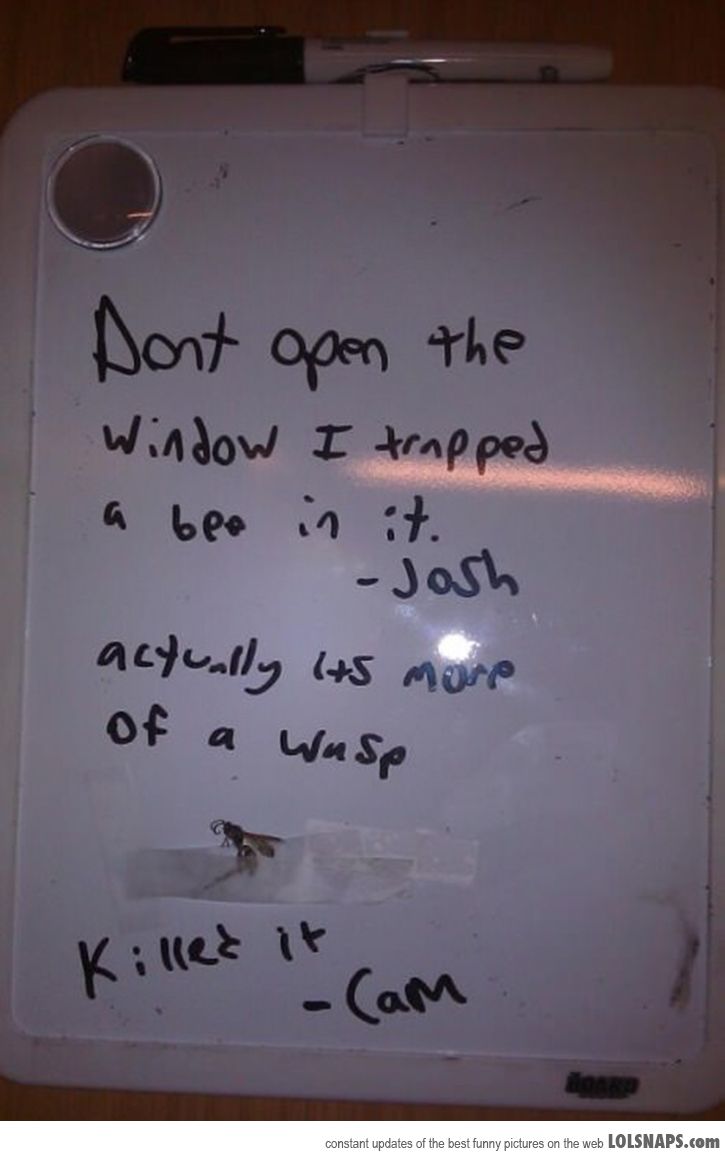 Dont open the
window I trapped
a bee in it.
-Josh
actually its more
of a wasp
Killed it
-Cam
THE BOARD
constant updates of the best funny pictures on the web LOLSNAPS.com